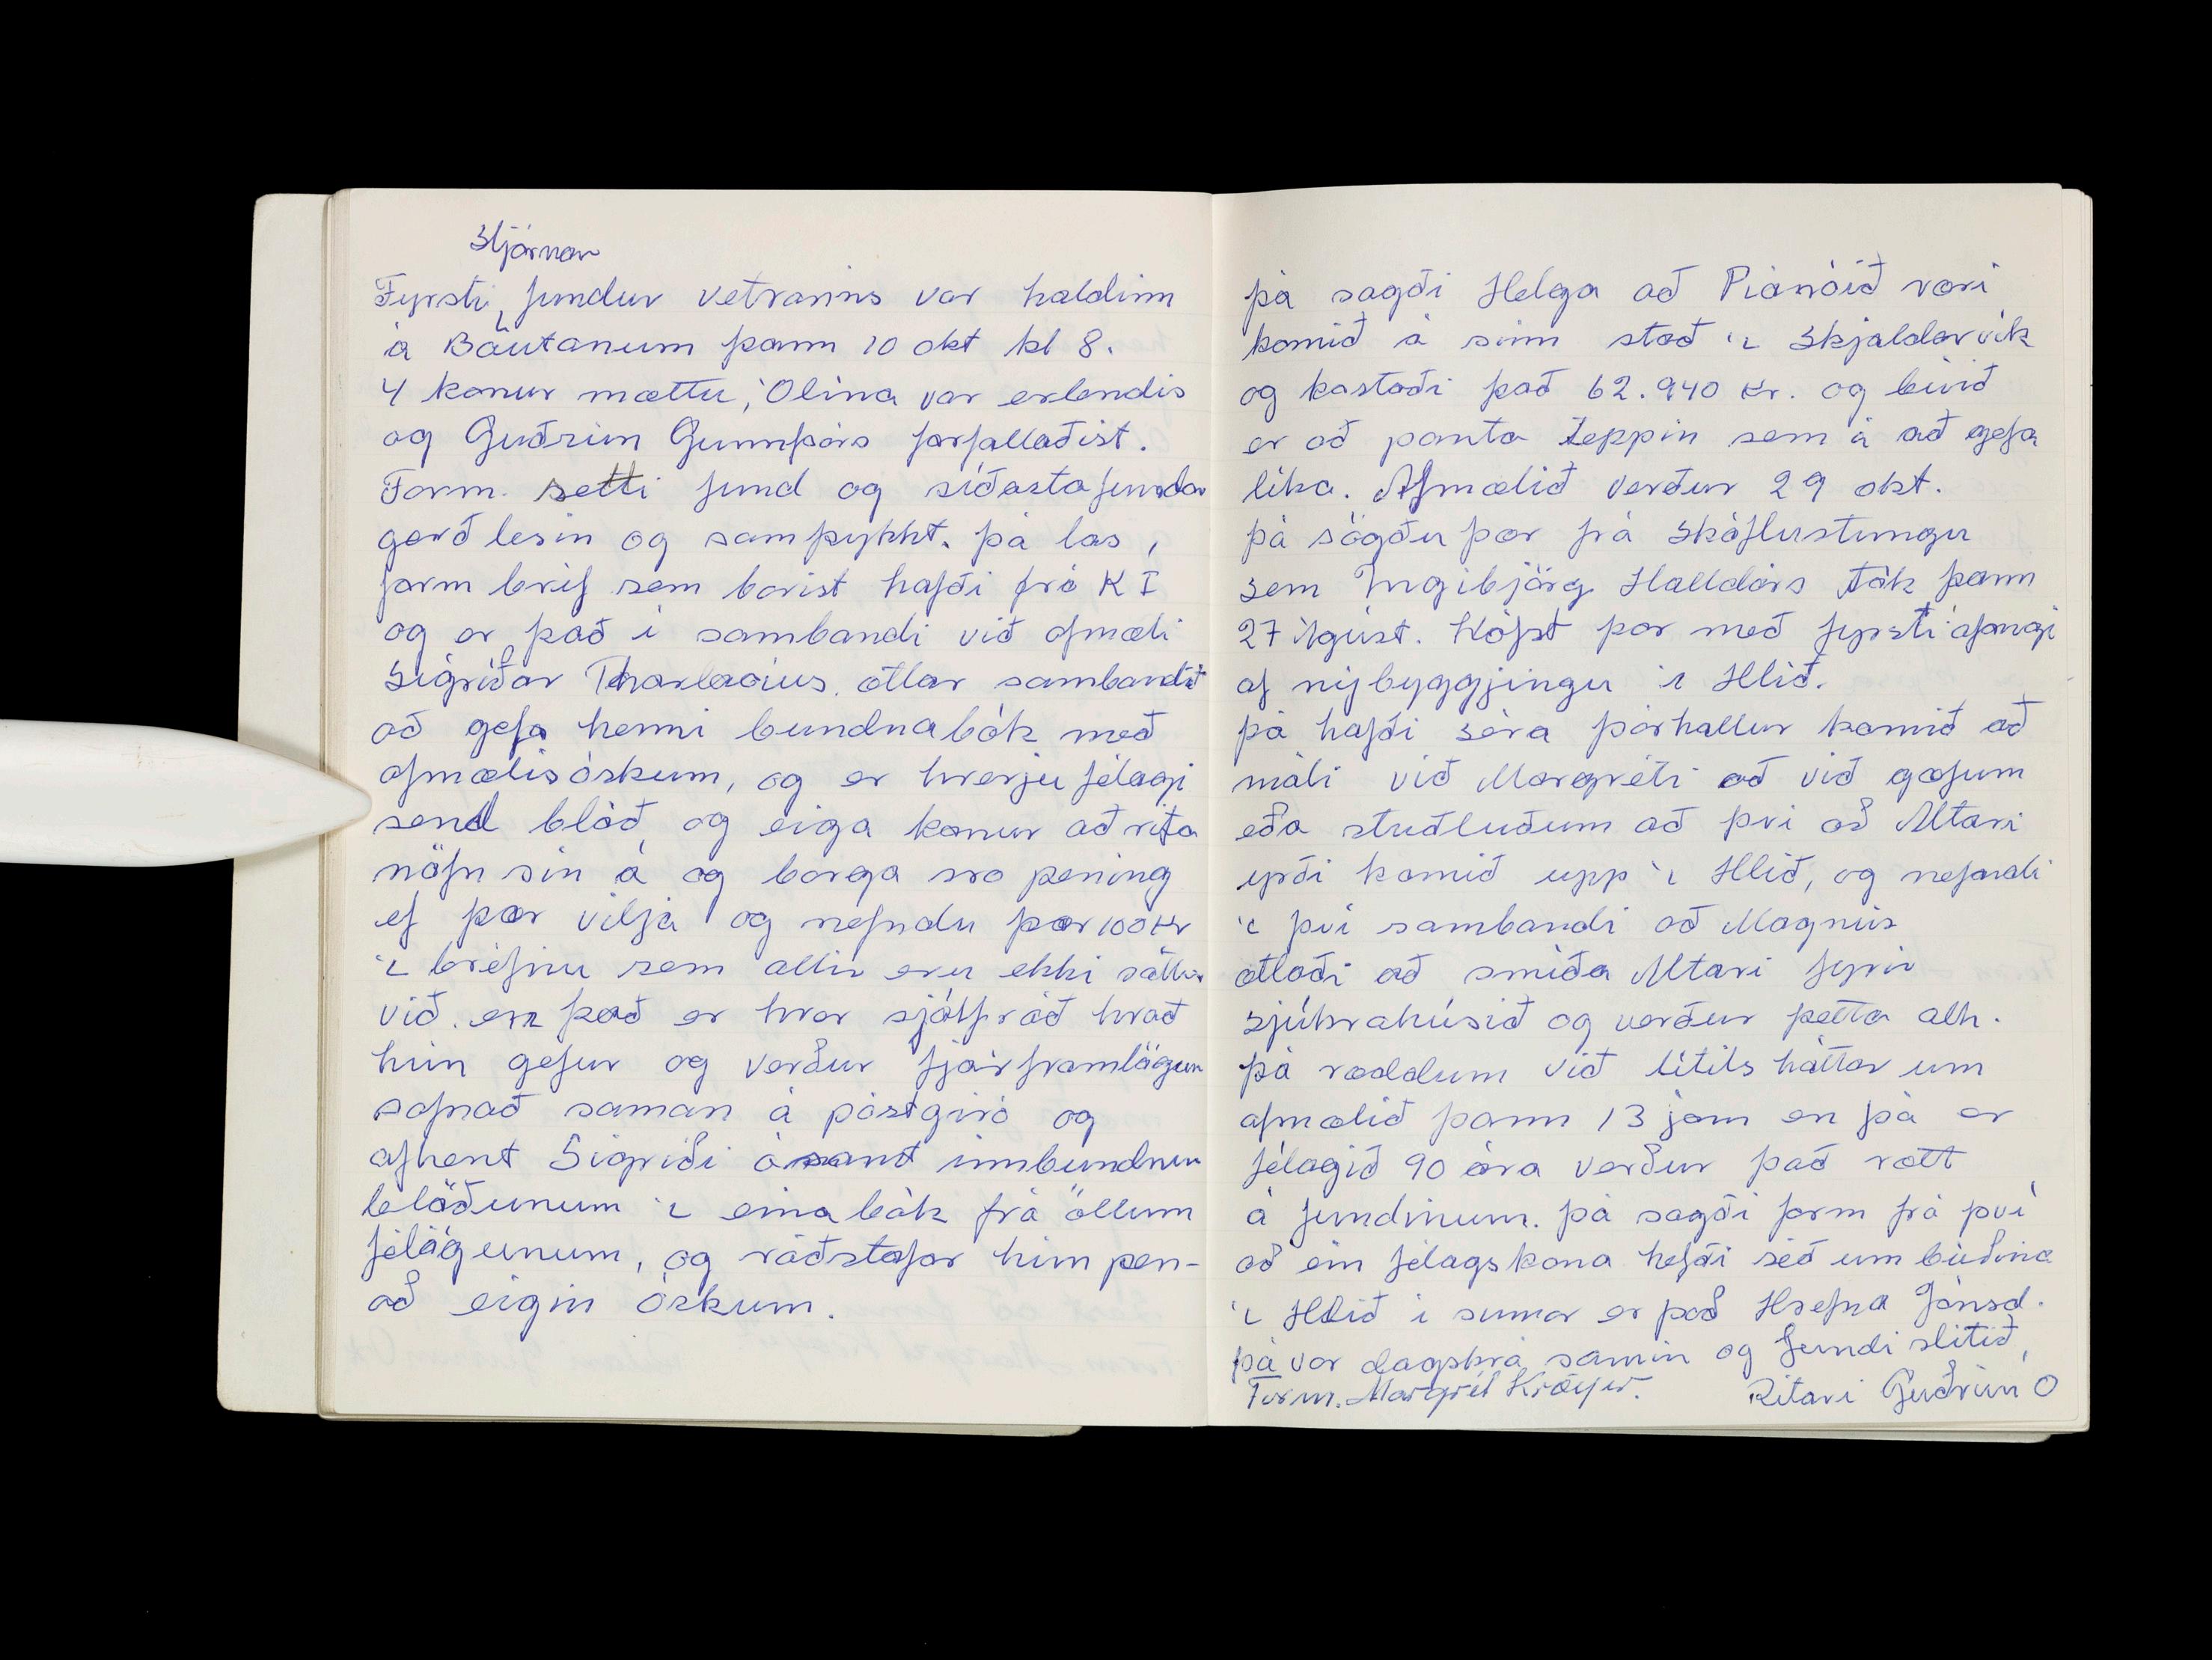 Stjórnar
Fyrsti fundur vetrarins var haldinn
á Bautanum þann 10 okt kl 8.
4 konur mættu, Ólína var erlendis
og Guðrún Gunnþórs forfallaðist.
Form. setti fund og síðasta fundar
gerð lesin og samþykkt. þá las,
form bréf sem borist hafði frá K Í
og er það í sambandi við afmæli
Sigríðar Thorlacius. ætlar sambandið
að gefa henni bundna bók með
afmælisóskum, og er hverju félagi
send blöð og eiga konur að rita
nöfn sín á og borga svo pening
ef þær vilja og nefndu þær 100 kr
í bréfinu sem allir eru ekki sáttir
við. en það er hver sjálfráð hvað
hún gefur og verður fjárframlögum
safnað saman á póstgíró og
afhent Sigríði ásamt innbundnu
blöðunum í eina bók frá öllum
félögunum, og ráðstafar hún pen-
að eigin óskum.
þá sagði Helga að Píanóið væri
komið á sinn stað í Skjaldarvík
og kostaði það 62.940 kr. og búið
er að panta teppin sem á að gefa
líka. Afmælið verður 29 okt.
þá sögðu þær frá skóflustungu
sem Ingibjörg Halldórs tók þann
27 Ágúst. Hófst þar með fyrsti áfangi
af nýbyggjingu í Hlíð.
þá hafði séra þórhallur komið að
máli við Margréti að við gæfum
eða stuðluðum að því að Altari
yrði komið upp í Hlíð, og nefndi
í því sambandi að Magnús
ætlaði að smíða Altari fyrir
sjúkrahúsið og verður þetta alh.
þá ræddum við lítils háttar um
afmælið þann 13 jan en þá er
félagið 90 ára verður það rætt
á fundinum. þá sagði form frá því
að ein félagskona hefði séð um búðina
í Hlíð í sumar er það Hrefna Jónsd.
þá var dagskrá samin og fundi slitið,
Form. Margrét Kröyer. Ritari Guðrún Ó